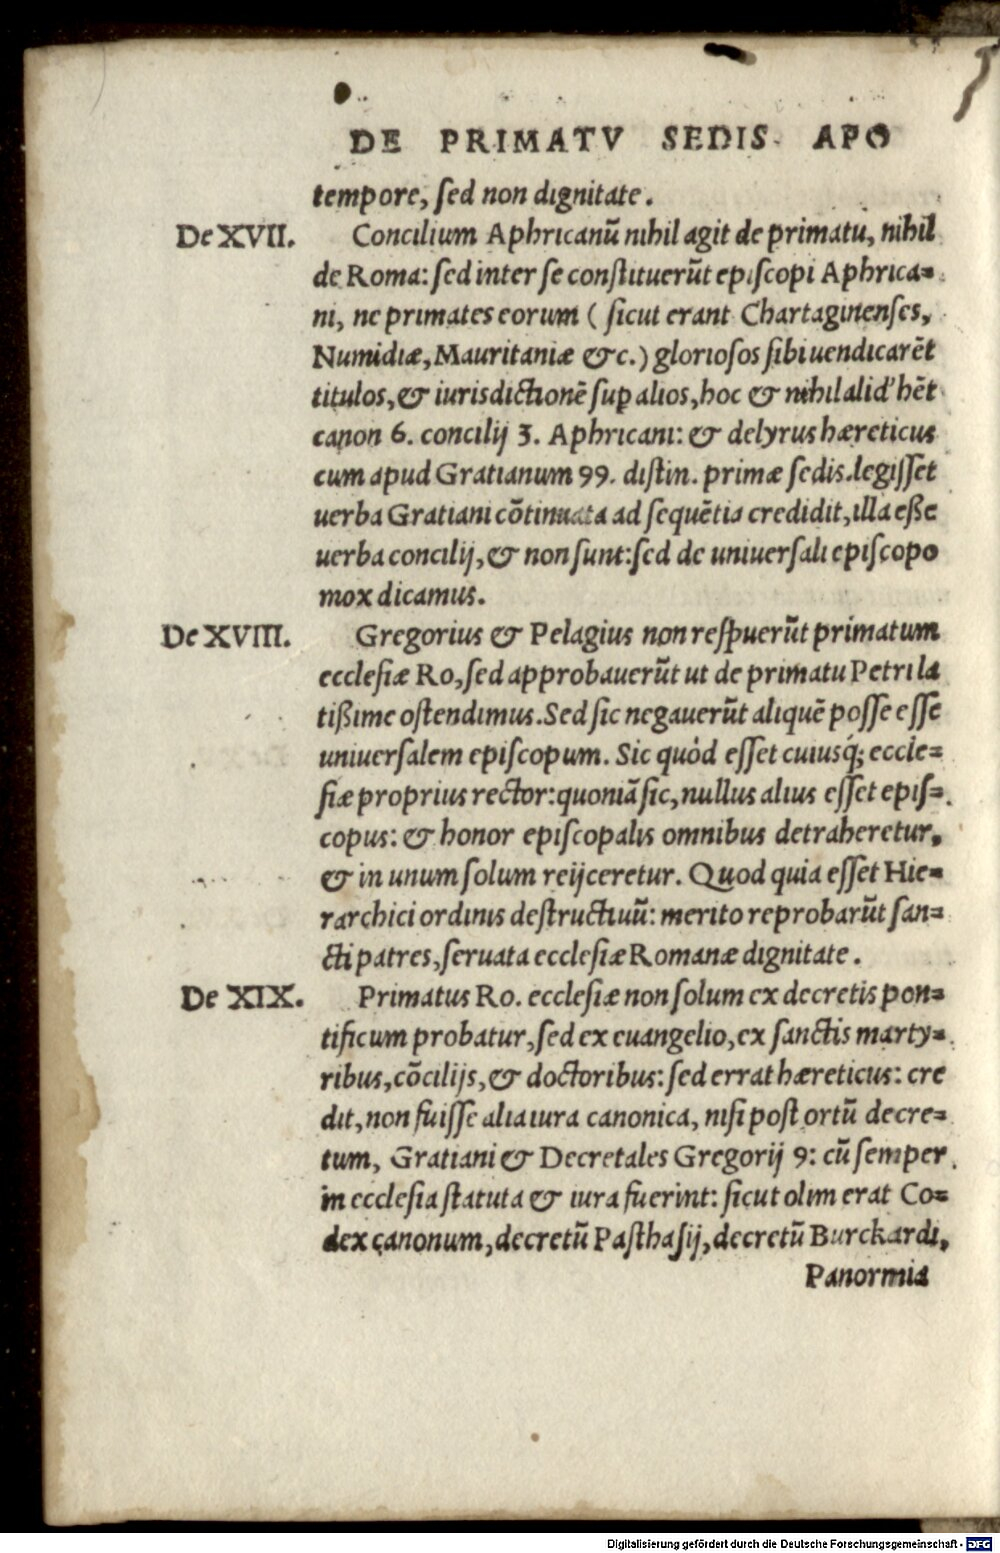 DE PRIMATV SEDIS APO
tempore, sed non dignitate.
De XVII. Concilium Aphricanū nihil agit de primatu, nihil
de Roma: sed inter se constituerūt episcopi Aphrica=
ni, ne primates eorum ( sicut erant Chartaginenses,
Numidiæ, Mauritaniæ &c.) gloriosos sibi uendicarēt
titulos, & iurisdictionē sup alios, hoc & nihil alid' hēt
canon 6. concilij 3. Aphricani: & delyrus hæreticus
cum apud Gratianum 99. distin. primæ sedis. legisset
uerba Gratiani cōtinuata ad sequētia credidit, illa eße
uerba concilij, & non sunt: sed de uniuersali episcopo
mox dicamus.
De XVIII. Gregorius & Pelagius non respuerūt primatum
ecclesiæ Ro, sed approbauerūt ut de primatu Petri la
tißime ostendimus. Sed sic negauerūt aliquē posse esse
uniuersalem episcopum. Sic quòd esset cuiusq́; eccle=
siæ proprius rector: quoniā sic, nullus alius esset epis=
copus: & honor episcopalis omnibus detraheretur,
& in unum solum reijceretur. Quod quia esset Hie=
rarchici ordinis destructiuū: merito reprobarūt san=
cti patres, seruata ecclesiæ Romanæ dignitate.
De XIX. Primatus Ro. ecclesiæ non solum ex decretis pon=
tificum probatur, sed ex euangelio, ex sanctis marty=
ribus, cōcilijs, & doctoribus: sed errat hæreticus: cre
dit, non fuisse alia iura canonica, nisi post ortū decre=
tum, Gratiani & Decretales Gregorij 9: cū semper
in ecclesia statuta & iura fuerint: sicut olim erat Co=
dex canonum, decretū Pasthasij, decretū Burckardi,
Panormia
Digitalisierung gefördert durch die Deutsche Forschungsgemeinschaft - DFG